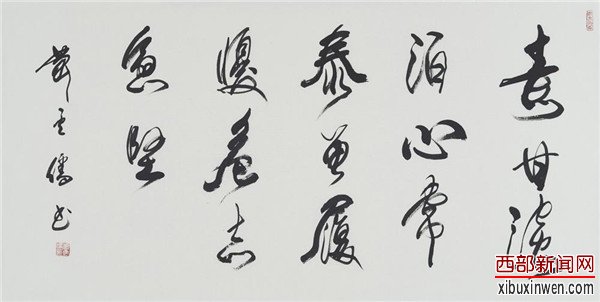 素甘澹
泊心常
泰曾履
懮危志
愈坚
儒书
西部新闻网
xibuxinwen.com